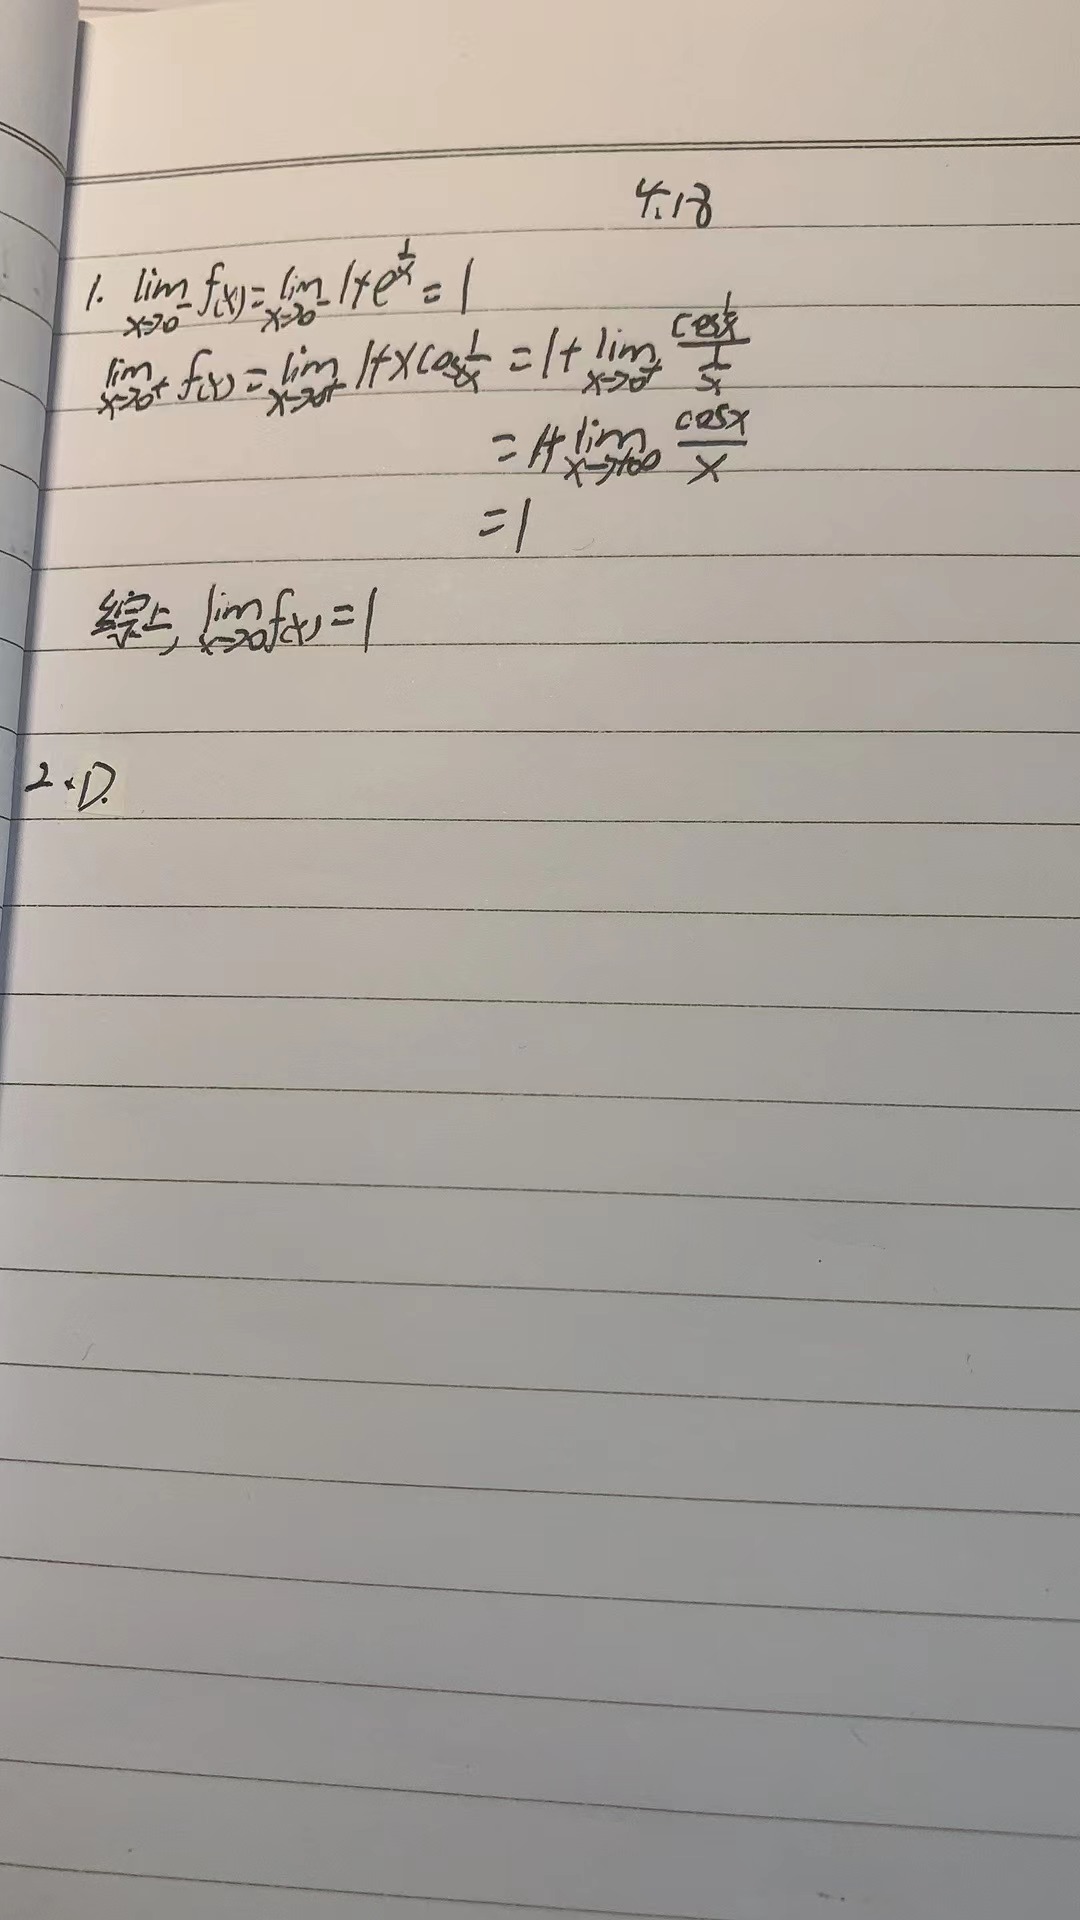 4.18
1. lim x→0⁻ f(x) = lim x→0⁻ 1+e^(1/x) = 1
lim x→0⁺ f(x) = lim x→0⁺ 1+x cos 1/x = 1+ lim x→0⁺ (cos 1/x)/(1/x)
= 1+ lim x→+∞ cosx/x
= 1
综上, lim x→0 f(x) = 1
2. D.